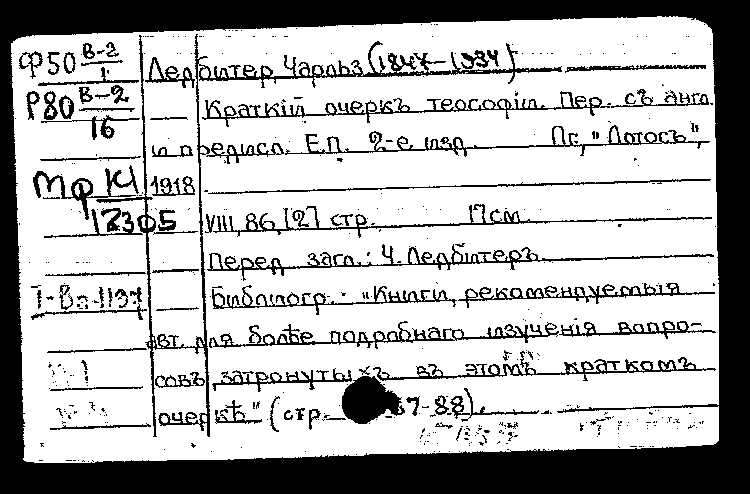 Ф50 В-2/1 Ледбитер, Чарльз (1847-1934)
Р80 В-2/16 Краткій очеркъ теософіи. Пер. съ англ.
и предисл. Е.П. 2-е изд. Пг., "Лотосъ",
Мф К1/12305 1918
VIII, 86, [2] стр. 17 см.
Перед загл.: Ч. Ледбитеръ.
Библіогр.: "Книги, рекомендуемыя
авт. для болѣе подробнаго изученія вопро-
совъ, затронутыхъ въ этомъ краткомъ
очеркѣ" (стр. 87-88).